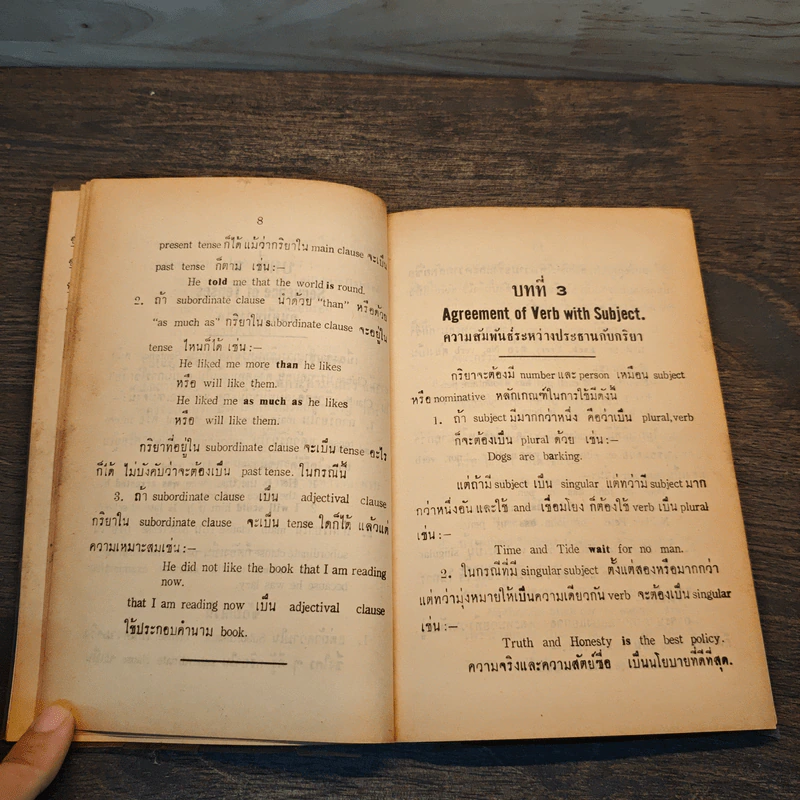 8
present tense ก็ได้ แม้ว่ากริยาใน main clause จะเป็น
past tense ก็ตาม เช่น:—
He told me that the world is round.
2. ถ้า subordinate clause นำด้วย "than" หรือด้วย
"as much as" กริยาใน subordinate clause จะอยู่ใน
tense ไหนก็ได้ เช่น:—
He liked me more than he likes
หรือ will like them.
He liked me as much as he likes
หรือ will like them.
กริยาที่อยู่ใน subordinate clause จะเป็น tense อะไร
ก็ได้ ไม่บังคับว่าจะต้องเป็น past tense. ในกรณีนี้
3. ถ้า subordinate clause เป็น adjectival clause
กริยาใน subordinate clause จะเป็น tense ใดก็ได้ แล้วแต่
ความเหมาะสมเช่น:—
He did not like the book that I am reading
now.
that I am reading now เป็น adjectival clause
ใช้ประกอบคำนาม book.
บทที่ 3
Agreement of Verb with Subject.
ความสัมพันธ์ระหว่างประธานกับกริยา
กริยาจะต้องมี number และ person เหมือน subject
หรือ nominative หลักเกณฑ์ในการใช้มีดังนี้
1. ถ้า subject มีมากกว่าหนึ่ง คือว่าเป็น plural, verb
ก็จะต้องเป็น plural ด้วย เช่น:—
Dogs are barking.
แต่ถ้ามี subject เป็น singular แต่ทว่ามี subject มาก
กว่าหนึ่งอัน และใช้ and เชื่อมโยง ก็ต้องใช้ verb เป็น plural
เช่น:—
Time and Tide wait for no man.
2. ในกรณีที่มี singular subject ตั้งแต่สองหรือมากกว่า
แต่ทว่ามุ่งหมายให้เป็นความเดียวกัน verb จะต้องเป็น singular
เช่น:—
Truth and Honesty is the best policy.
ความจริงและความสัตย์ซื่อ เป็นนโยบายที่ดีที่สุด.